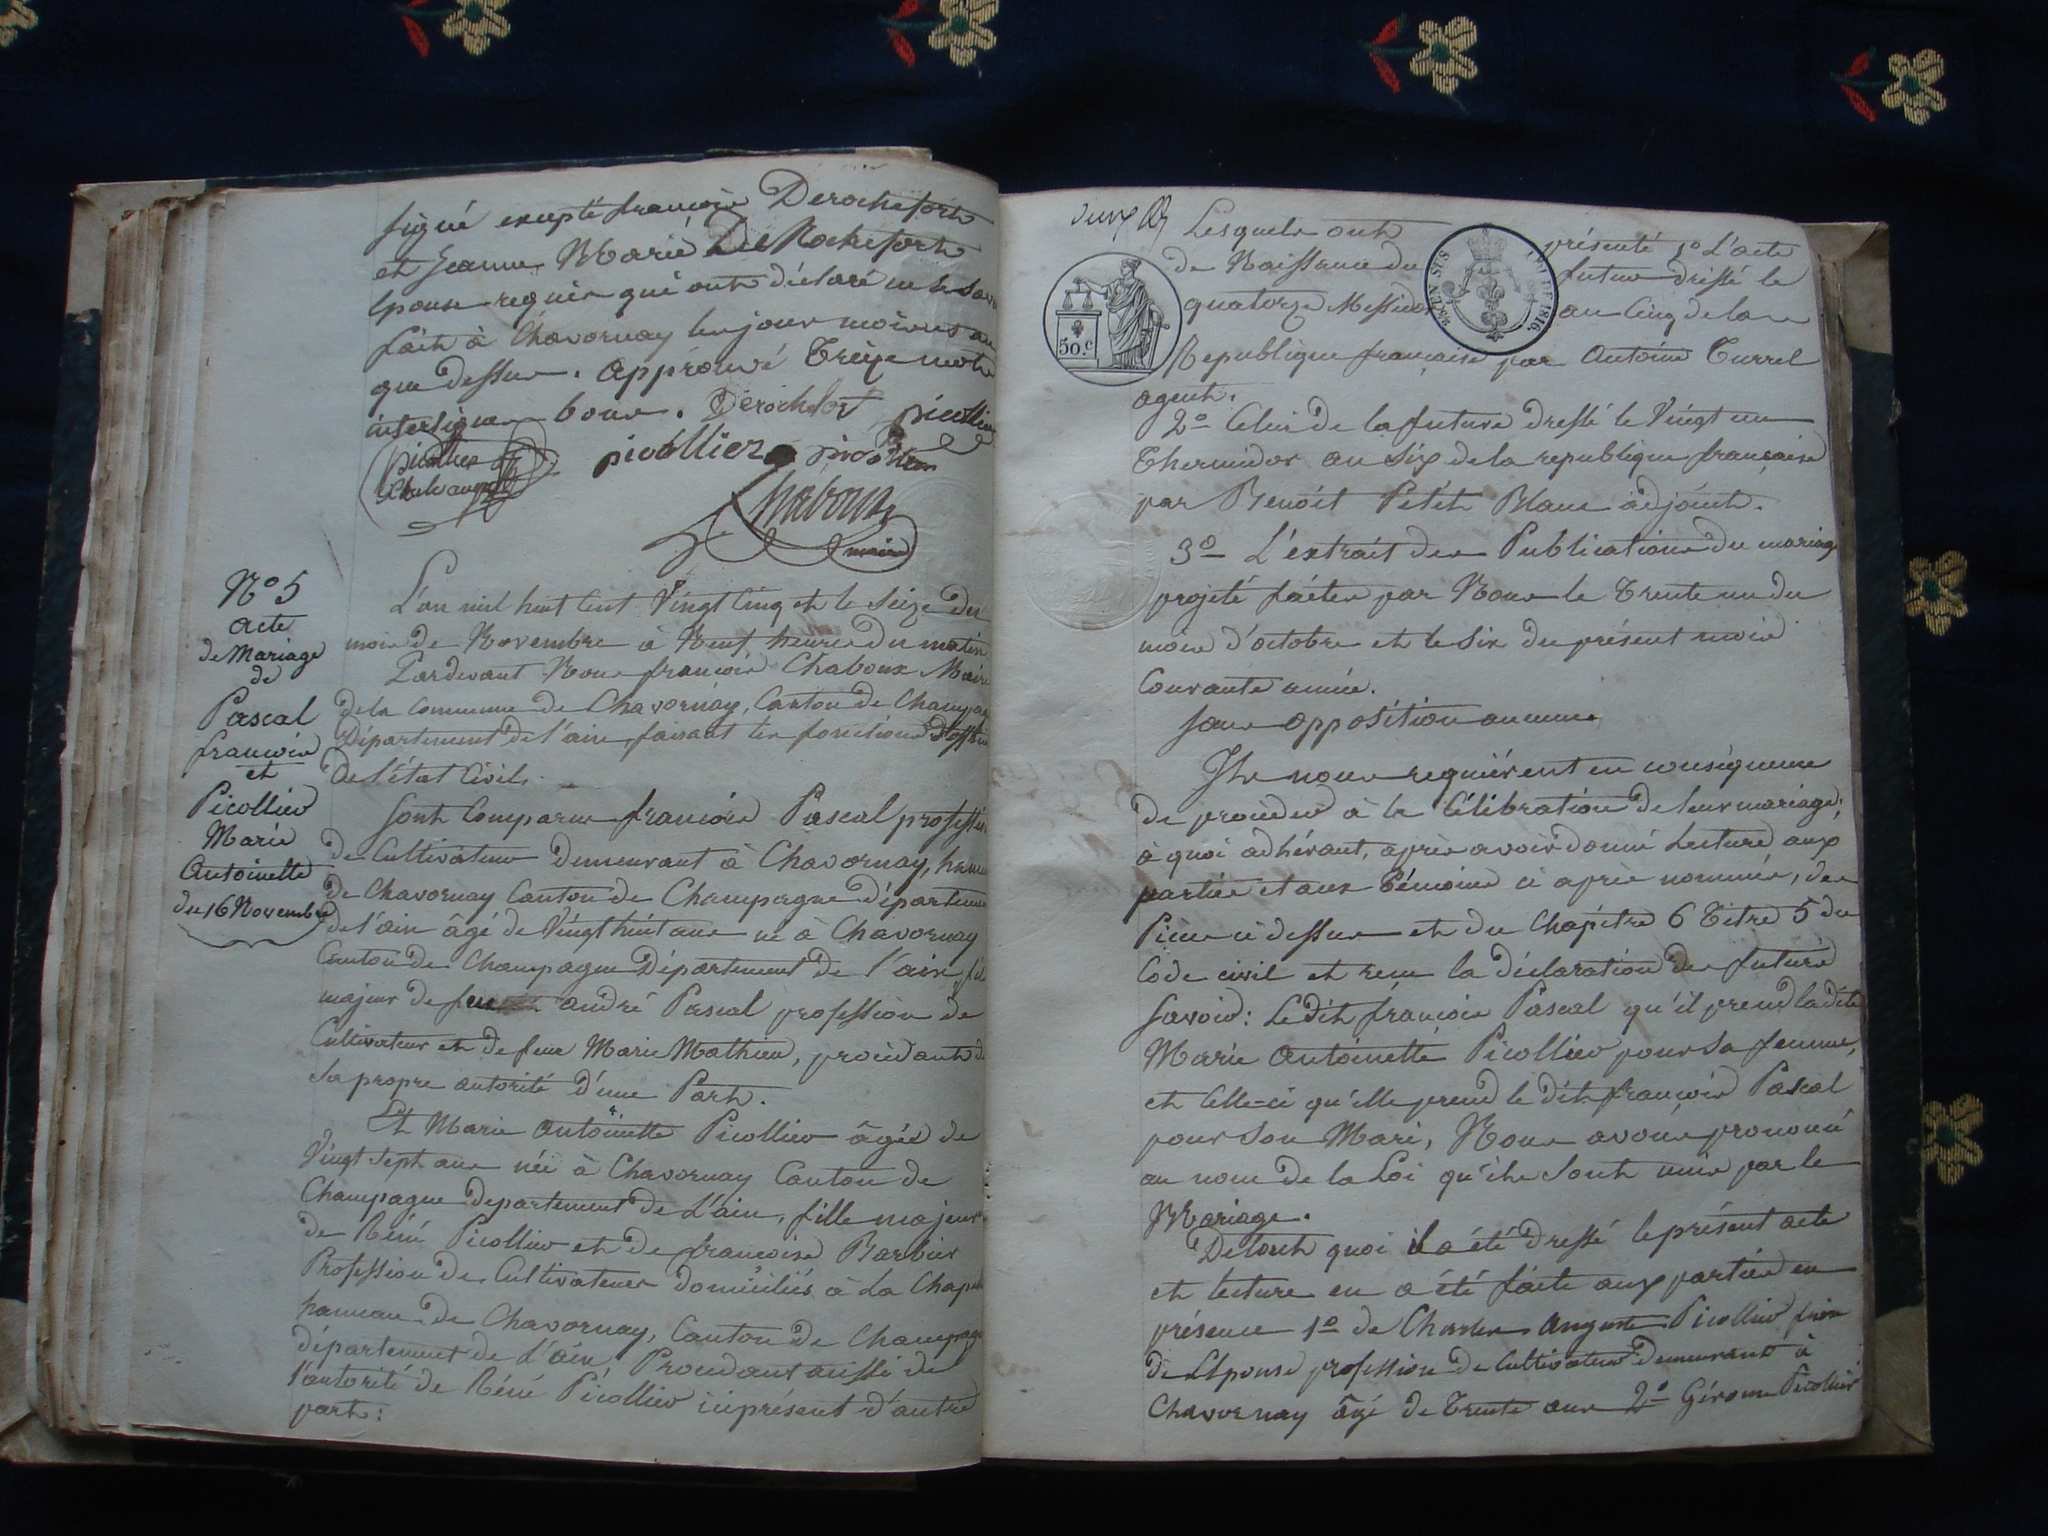 signé excepté françois Derochefort
et Jeanne Marie De Rochefort
Epouse requis qui ont déclaré ne le savoir
fait à Chavornay les jour mois et an
que dessus. approuvé Treize mots
interlignes bons. Derochefort picollier
picollier picollier picollier
Chaboux
maire
N° 5
acte
de Mariage
de
Pascal
francois
et
Picollier
Marie
Antoinette
du 16 Novembre
L'an mil huit Cent Vingt Cinq et le Seize du
mois de Novembre à Neuf heures du matin
Pardevant Nous françois Chaboux Maire
de la Commune de Chavornay, Canton de Champagne
Département de l'ain, faisant les fonctions d'offi
De l'état Civil.
Sont Comparus françois Pascal profession
de Cultivateur demeurant à Chavornay, hameau
de Chavornay Canton de Champagne département
de l'ain âgé de Vingt huit ans né à Chavornay
Canton de Champagne Département de l'ain, fils
majeur de feu andré Pascal profession de
Cultivateur et de feue Marie Mathieu, procédant de
Sa propre autorité d'une Part.
Et Marie Antoinette Picollier âgée de
Vingt Sept ans née à Chavornay Canton de
Champagne département de L'ain, fille majeure
de Réné Picollier et de françoise Barbier
Profession de Cultivateurs domiciliés à La Chapelle
hameau de Chavornay, Canton de Champagne
département de L'ain, Procédant aussi de
l'autorité de Réné Picollier ici présent d'autre
part:
Lesquels ont présenté 1° L'acte
de Naissance du futur dressé le
quatorze Messidor an Cinq de la
50.c
DE 1816.
République française par Antoine Turrel
agent.
2° Celui de la future dressé le Vingt un
Thermidor an Six de la republique française
par Benoit Petit Blanc adjoint.
3° L'extrait des Publications du mariage
projeté faites par Nous le Trente un du
mois d'octobre et le Six du présent mois
Courante année.
Sans opposition aucune
Ils nous requièrent en conséquence
de procéder à la Célébration de leur mariage;
à quoi adhérant, après avoir donné Lecture aux
parties et aux Témoins ci après nommés, des
Pièces ci dessus et du Chapitre 6 Titre 5 du
Code civil et reçu la déclaration des futurs
Savoir: Ledit françois Pascal qu'il prend ladite
Marie Antoinette Picollier pour Sa femme,
et Celle-ci qu'elle prend le dit françois Pascal
pour Son Mari, Nous avons prononcé
au nom de la Loi qu'ils Sont unis par le
Mariage.
De tout quoi il a été dressé le présent acte
et lecture en a été faite aux parties en
présence 1° de Charles Auguste Picollier frère
de L'Epouse profession de Cultivateur demeurant à
Chavornay âgé de Trente ans 2° Gérome Picollier